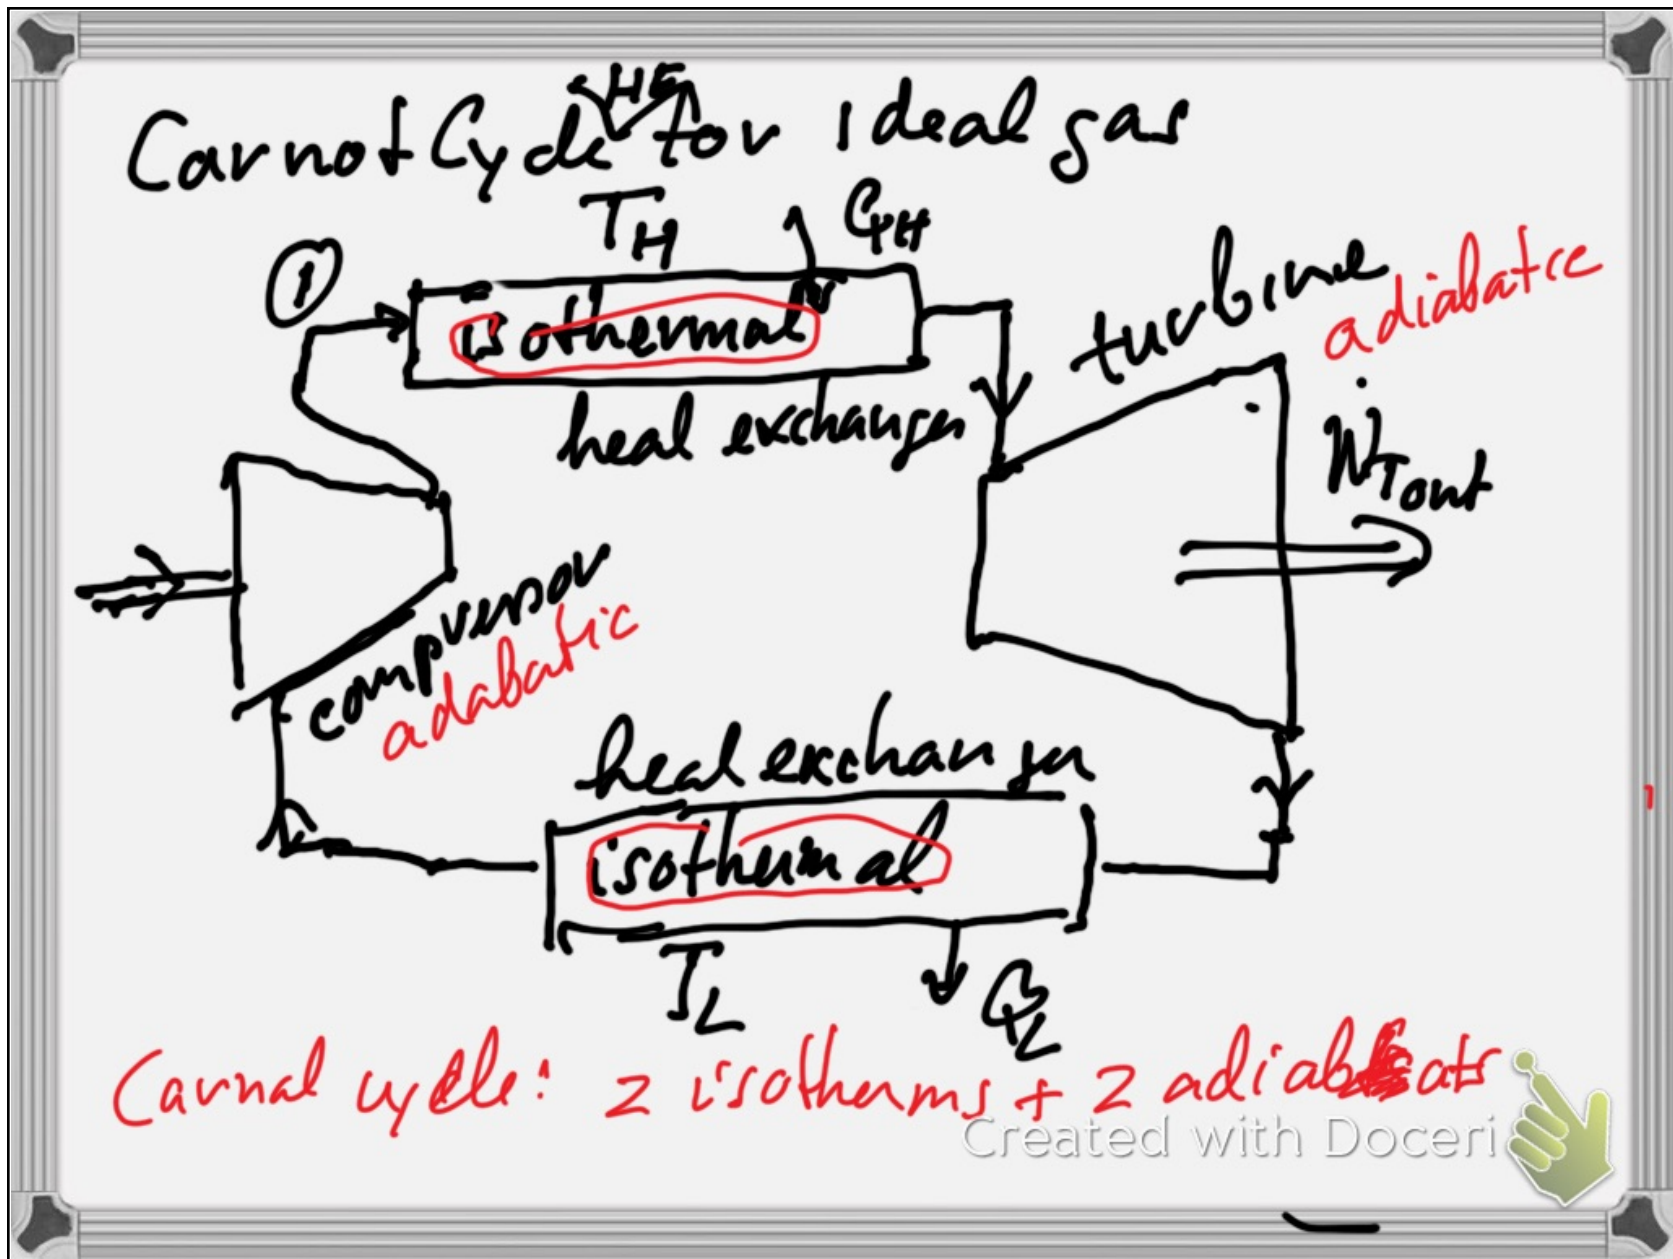 HE
Carnot Cycle for Ideal gas
TH
QH
①
isothermal
turbine
adiabatic
heat exchanger
ẆTout
compressor
adabatic
heat exchanger
isothermal
TL
QL
Carnot cycle: 2 isotherms + 2 adiabats
Created with Doceri
1